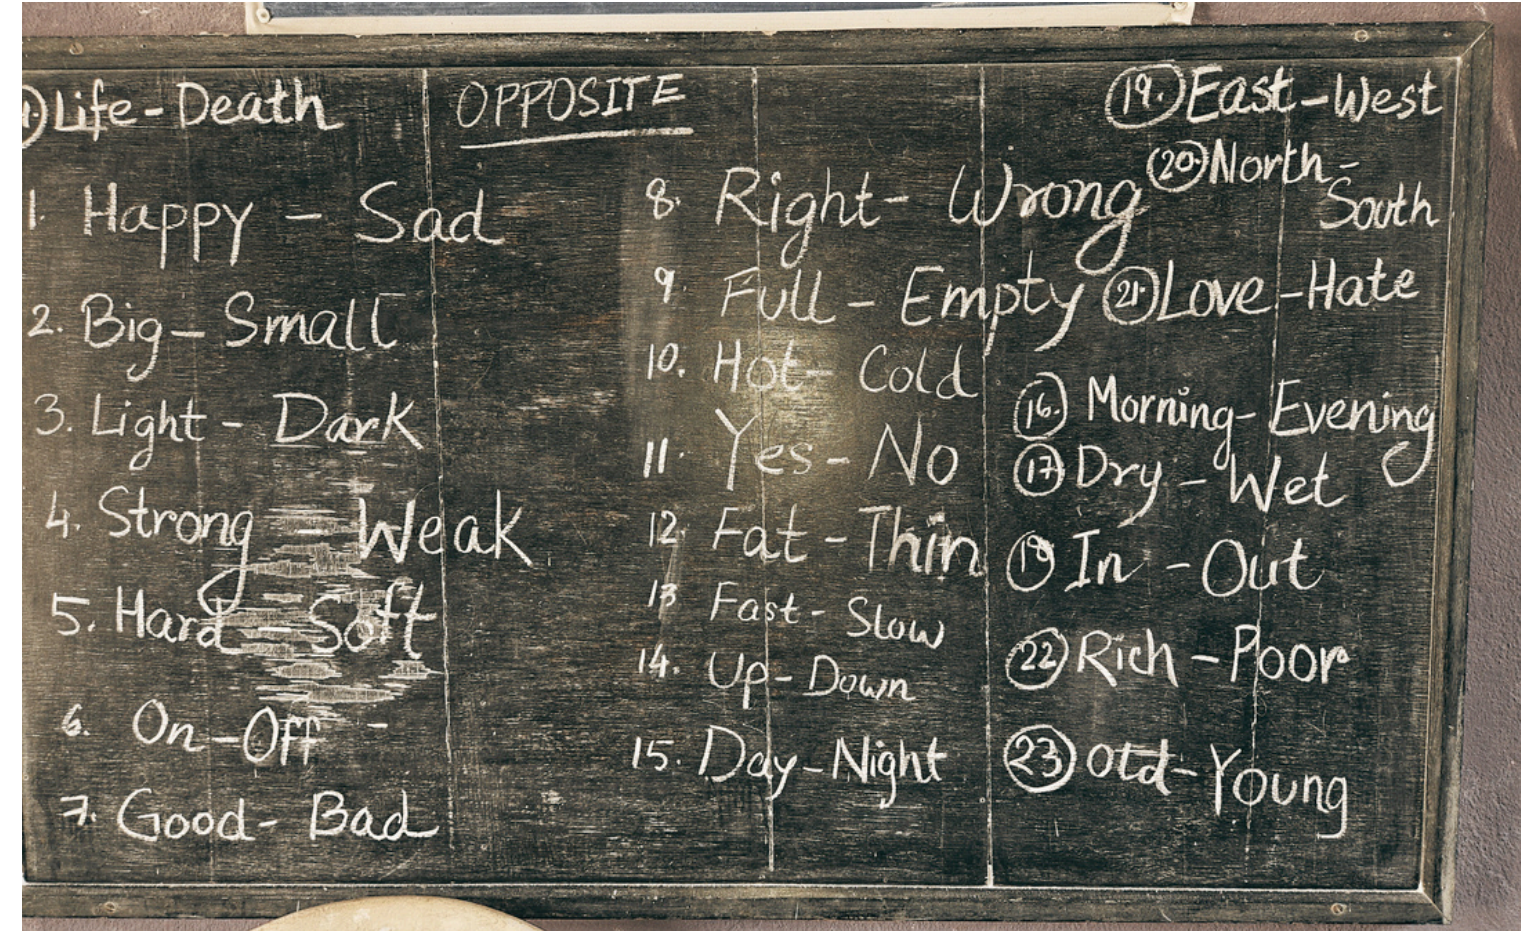 OPPOSITE
Life - Death
1. Happy - Sad
2. Big - Small
3. Light - Dark
4. Strong - Weak
5. Hard - Soft
6. On - Off -
7. Good - Bad
8. Right - Wrong
9. Full - Empty
10. Hot - Cold
11. Yes - No
12. Fat - Thin
13 Fast - Slow
14. Up - Down
15. Day - Night
19. East - West
20. North -
South
21. Love - Hate
16. Morning - Evening
17 Dry - Wet
In - Out
22 Rich - Poor
23 Old - Young